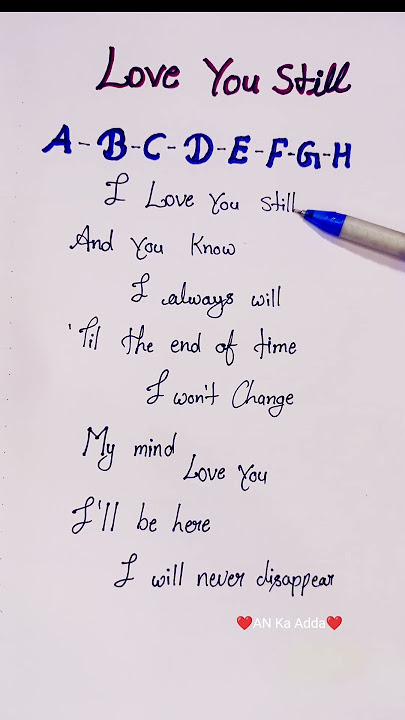 Love You Still
A-B-C-D-E-F-G-H
I Love You Still
And You Know
I always will
'Til the end of time
I won't Change
My mind
Love You
I'll be here
I will never disappear
❤️AN Ka Adda❤️